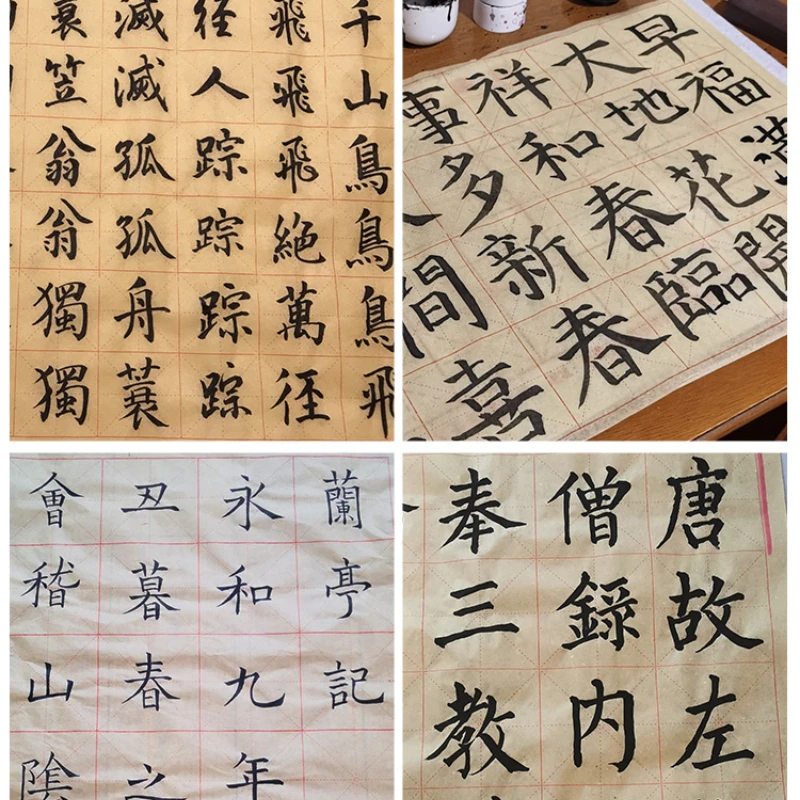 千山鳥鳥鳥飛
飛飛飛絕萬径
径人踪踪踪踪
滅滅孤孤舟蓑
蓑笠翁翁獨獨
早福满
大地花開
祥和春臨
事多新春
間喜
蘭亭記
永和九年
丑暮春之
會稽山陰
唐故左
僧錄内
奉三教